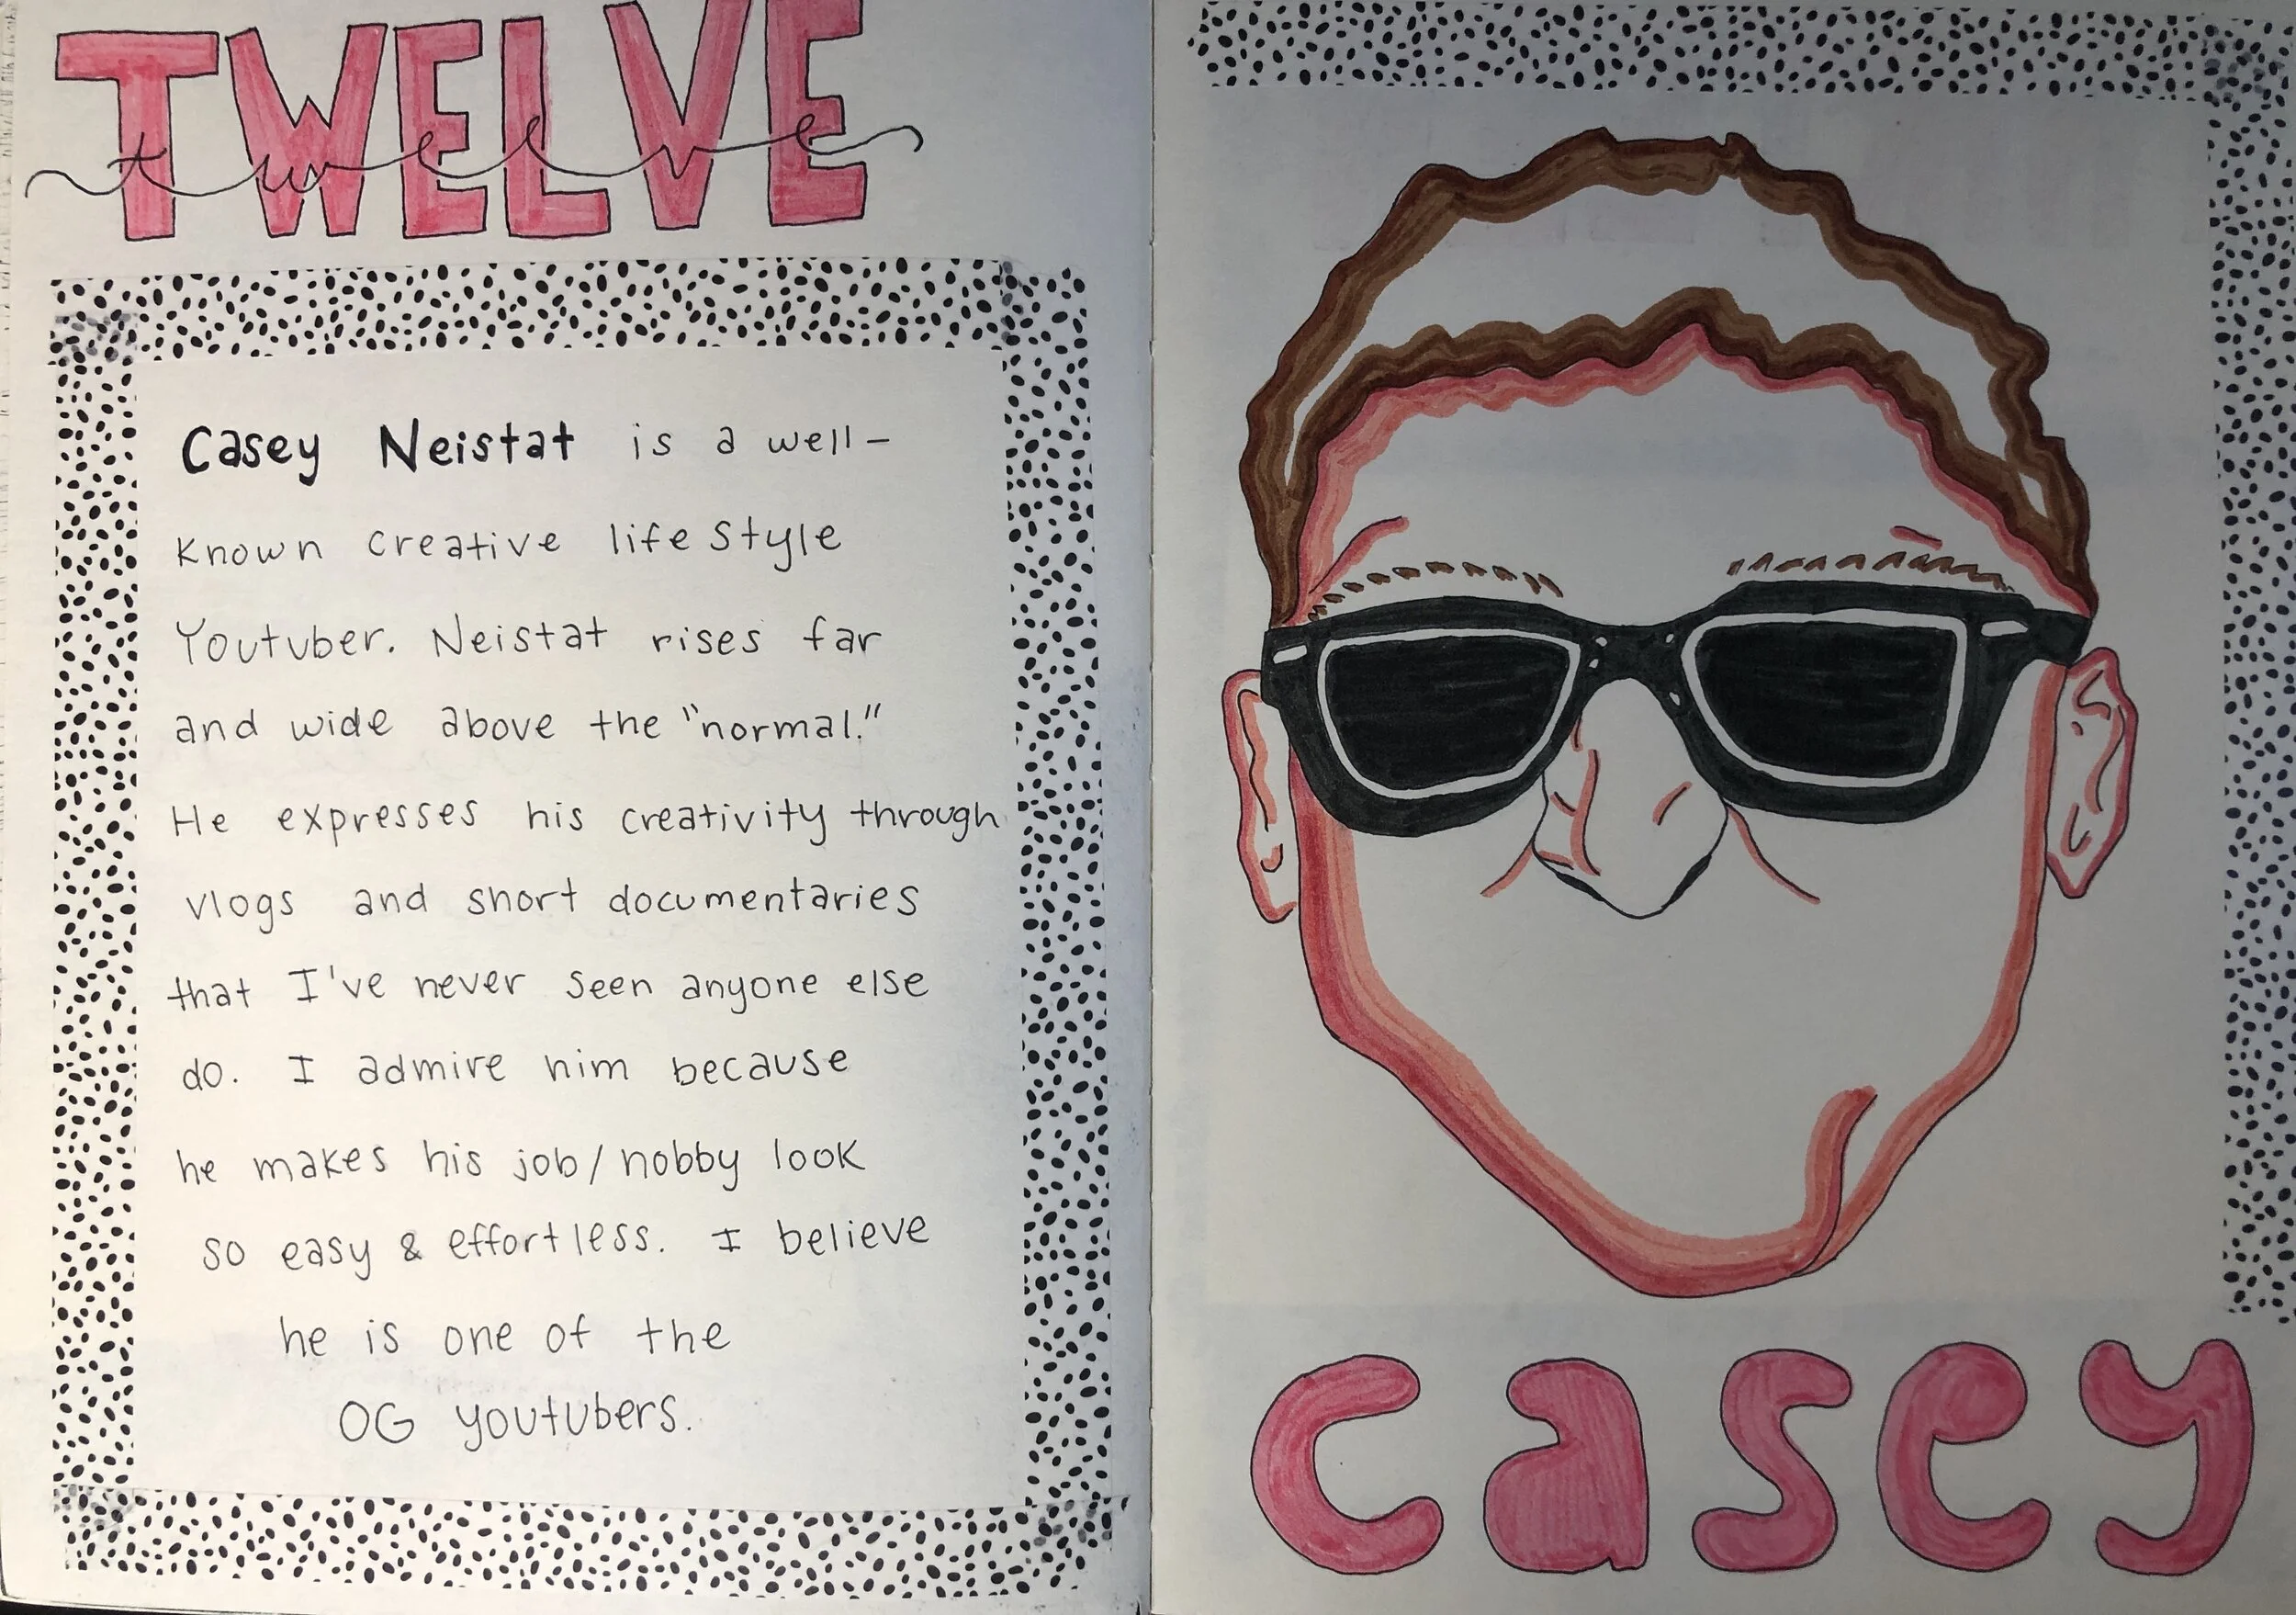 TWELVE
twelve
Casey Neistat is a well-
known creative lifestyle
Youtuber. Neistat rises far
and wide above the "normal."
He expresses his creativity through
vlogs and short documentaries
that I've never seen anyone else
do. I admire him because
he makes his job/hobby look
so easy & effortless. I believe
he is one of the
OG youtubers.
casey